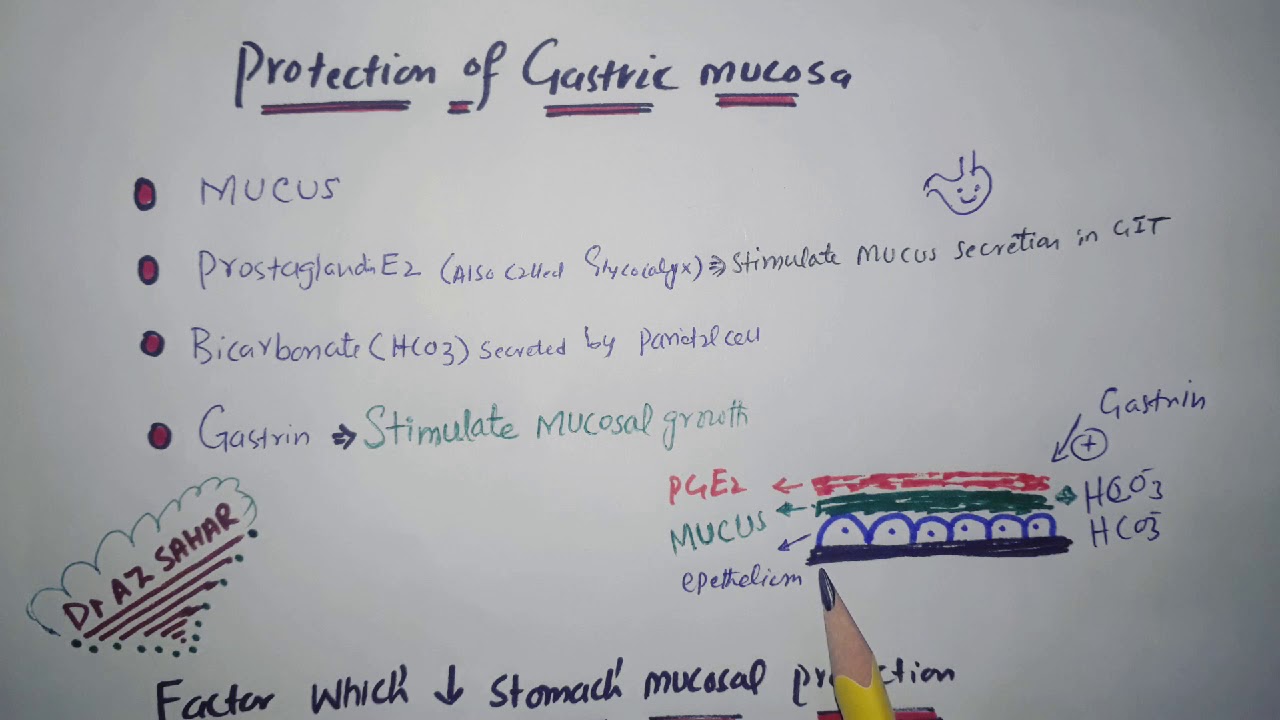 Protection of Gastric mucosa
MUCUS
ProstaglandinE2 (Also called Glycocalyx) ⇒ Stimulate Mucus secretion in GIT
Bicarbonate (HCO3) secreted by Parietal cell
Gastrin ⇒ Stimulate Mucosal growth
Gastrin
+
PGE2
HCO3-
MUCUS
HCO3-
epethelicm
Dr AZ SAHAR
Factor Which ↓ Stomach mucosal